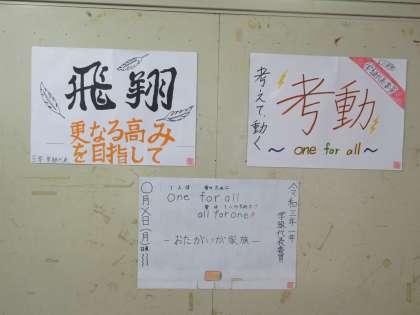 飛翔
更なる高み
を目指して
考えて、動く
考動
～ one for all ～
one for all
all for one!
－おたがいが家族－
〇月×日(月)
令和三年一年
学級代表委員